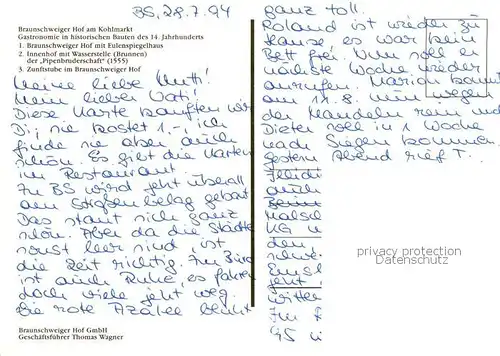 Braunschweiger Hof am Kohlmarkt
Gastronomie in historischen Bauten des 14. Jahrhunderts
1. Braunschweiger Hof mit Eulenspiegelhaus
2. Innenhof mit Wasserstelle (Brunnen)
der „Pipenbruderschaft" (1555)
3. Zunftstube im Braunschweiger Hof
BS, 28.7.94
Meine liebe Mutti!
Mein lieber Vati!
Diese Karte kauften wir
Di, sie kostet 1,-, ich
finde sie aber auch
schön. Es gibt die Karten
im Restaurant.
In BS wird jetzt überall
am Straßenbelag gebaut.
Das staut sich ganz
schön. Aber da die Städte
sonst leer sind, ist
die Zeit richtig. Im Büro
ist auch Ruhe, es fahren
doch viele jetzt weg.
Die rote Azalee blüht
Braunschweiger Hof GmbH
Geschäftsführer Thomas Wagner
ganz toll.
Roland ist wieder zu
Hause es war kein
Bett frei. Nun soll er
nächste Woche wieder
anrufen. Marion kommt
am 11.8. nun wegen
der Mandeln rein und
Dieter soll in 1 Woche
nach Siegen kommen.
Gestern Abend rief T.
auch
KG u
den
privacy protection
Datenschutz